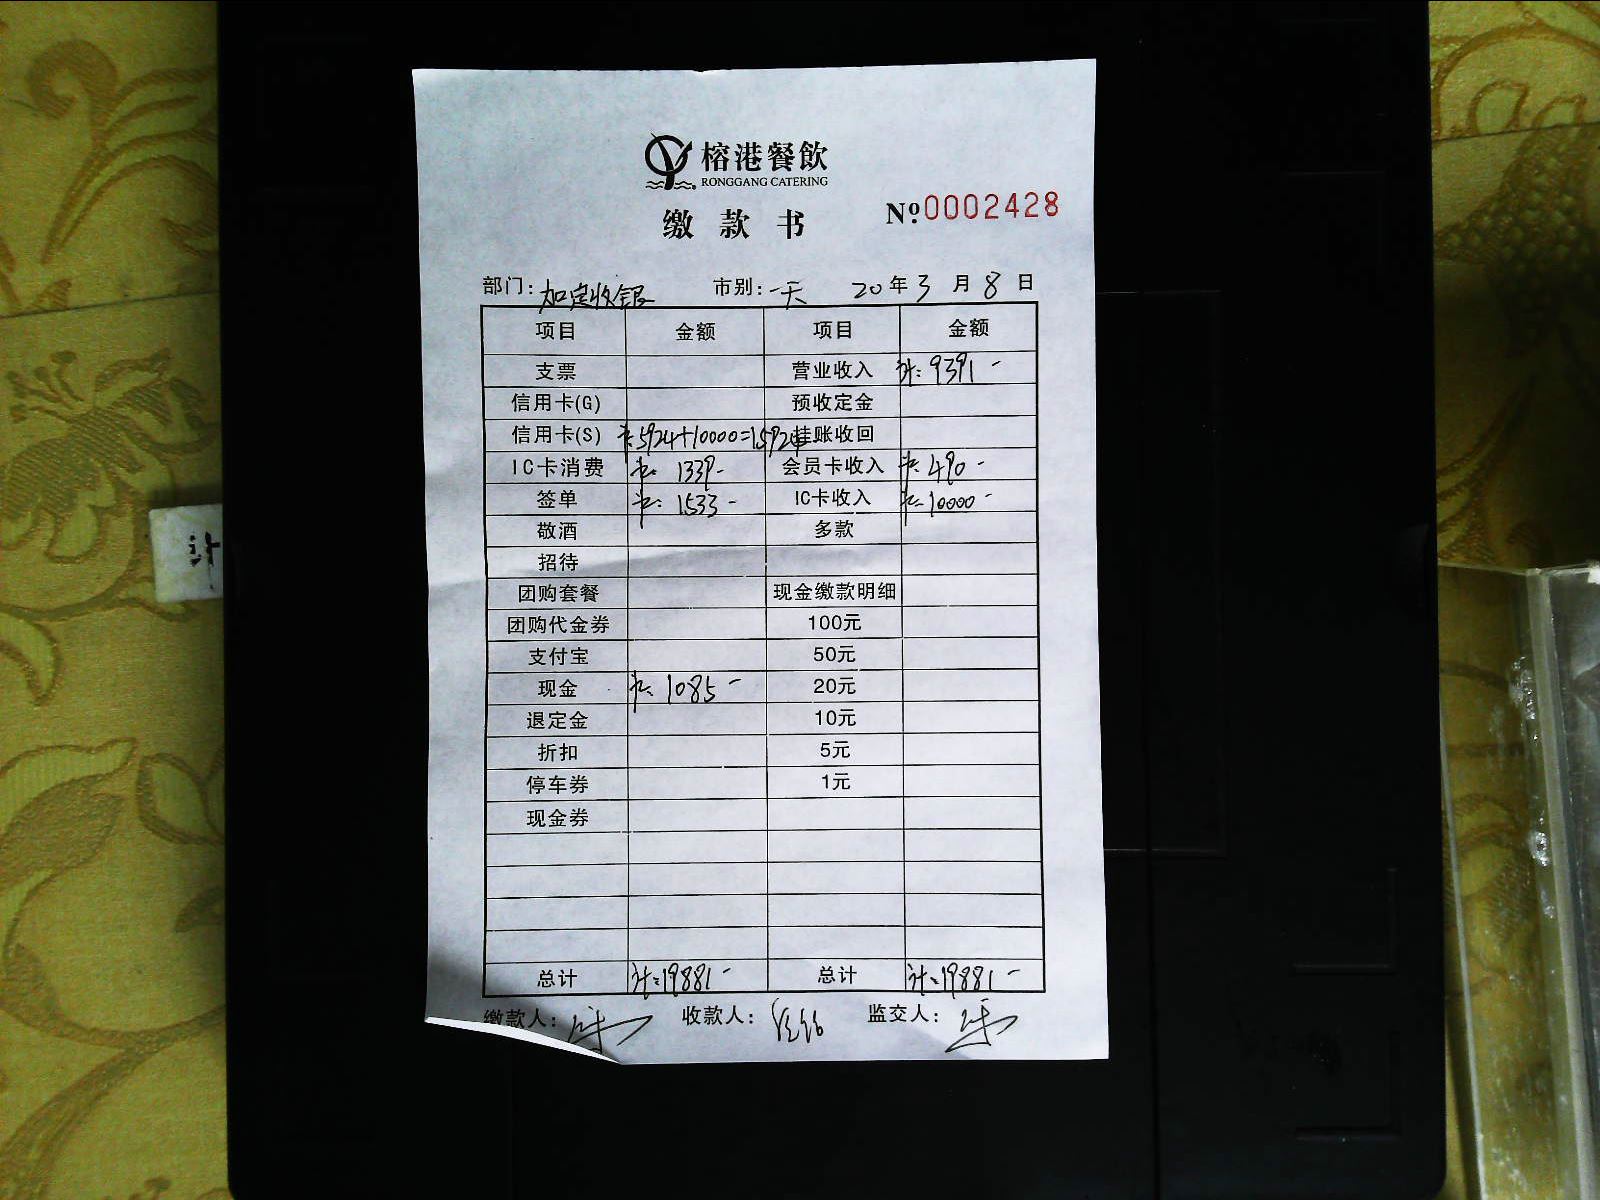 榕港餐飲
RONGGANG CATERING
缴款书 №0002428
部门: 加定收银 市别: 一天 20年3月8日
项目 金额 项目 金额
支票 营业收入 计: 9391-
信用卡(G) 预收定金
信用卡(S) 卡: 5924+10000=15924 挂账收回
IC卡消费 卡: 1339- 会员卡收入 卡: 490-
签单 卡: 1533- IC卡收入 卡: 10000-
敬酒 多款
招待
团购套餐 现金缴款明细
团购代金券 100元
支付宝 50元
现金 卡: 1085- 20元
退定金 10元
折扣 5元
停车券 1元
现金券
总计 计: 19881- 总计 计: 19881-
缴款人: 收款人: 监交人: